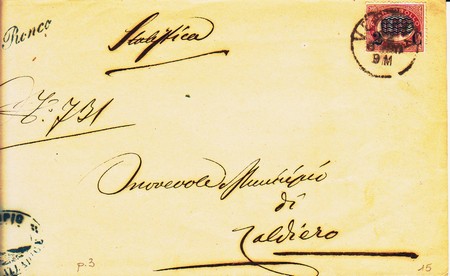 Ronco
Statistica
N. 731
Onorevole Municipio
di
Caldiero
p.3
15